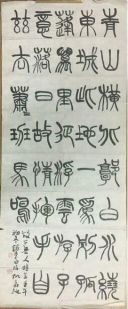 青山橫北郭白水繞
東城此地一為別孤
蓬萬里征浮雲游子
意落日故人情揮手自
茲去蕭班馬鳴